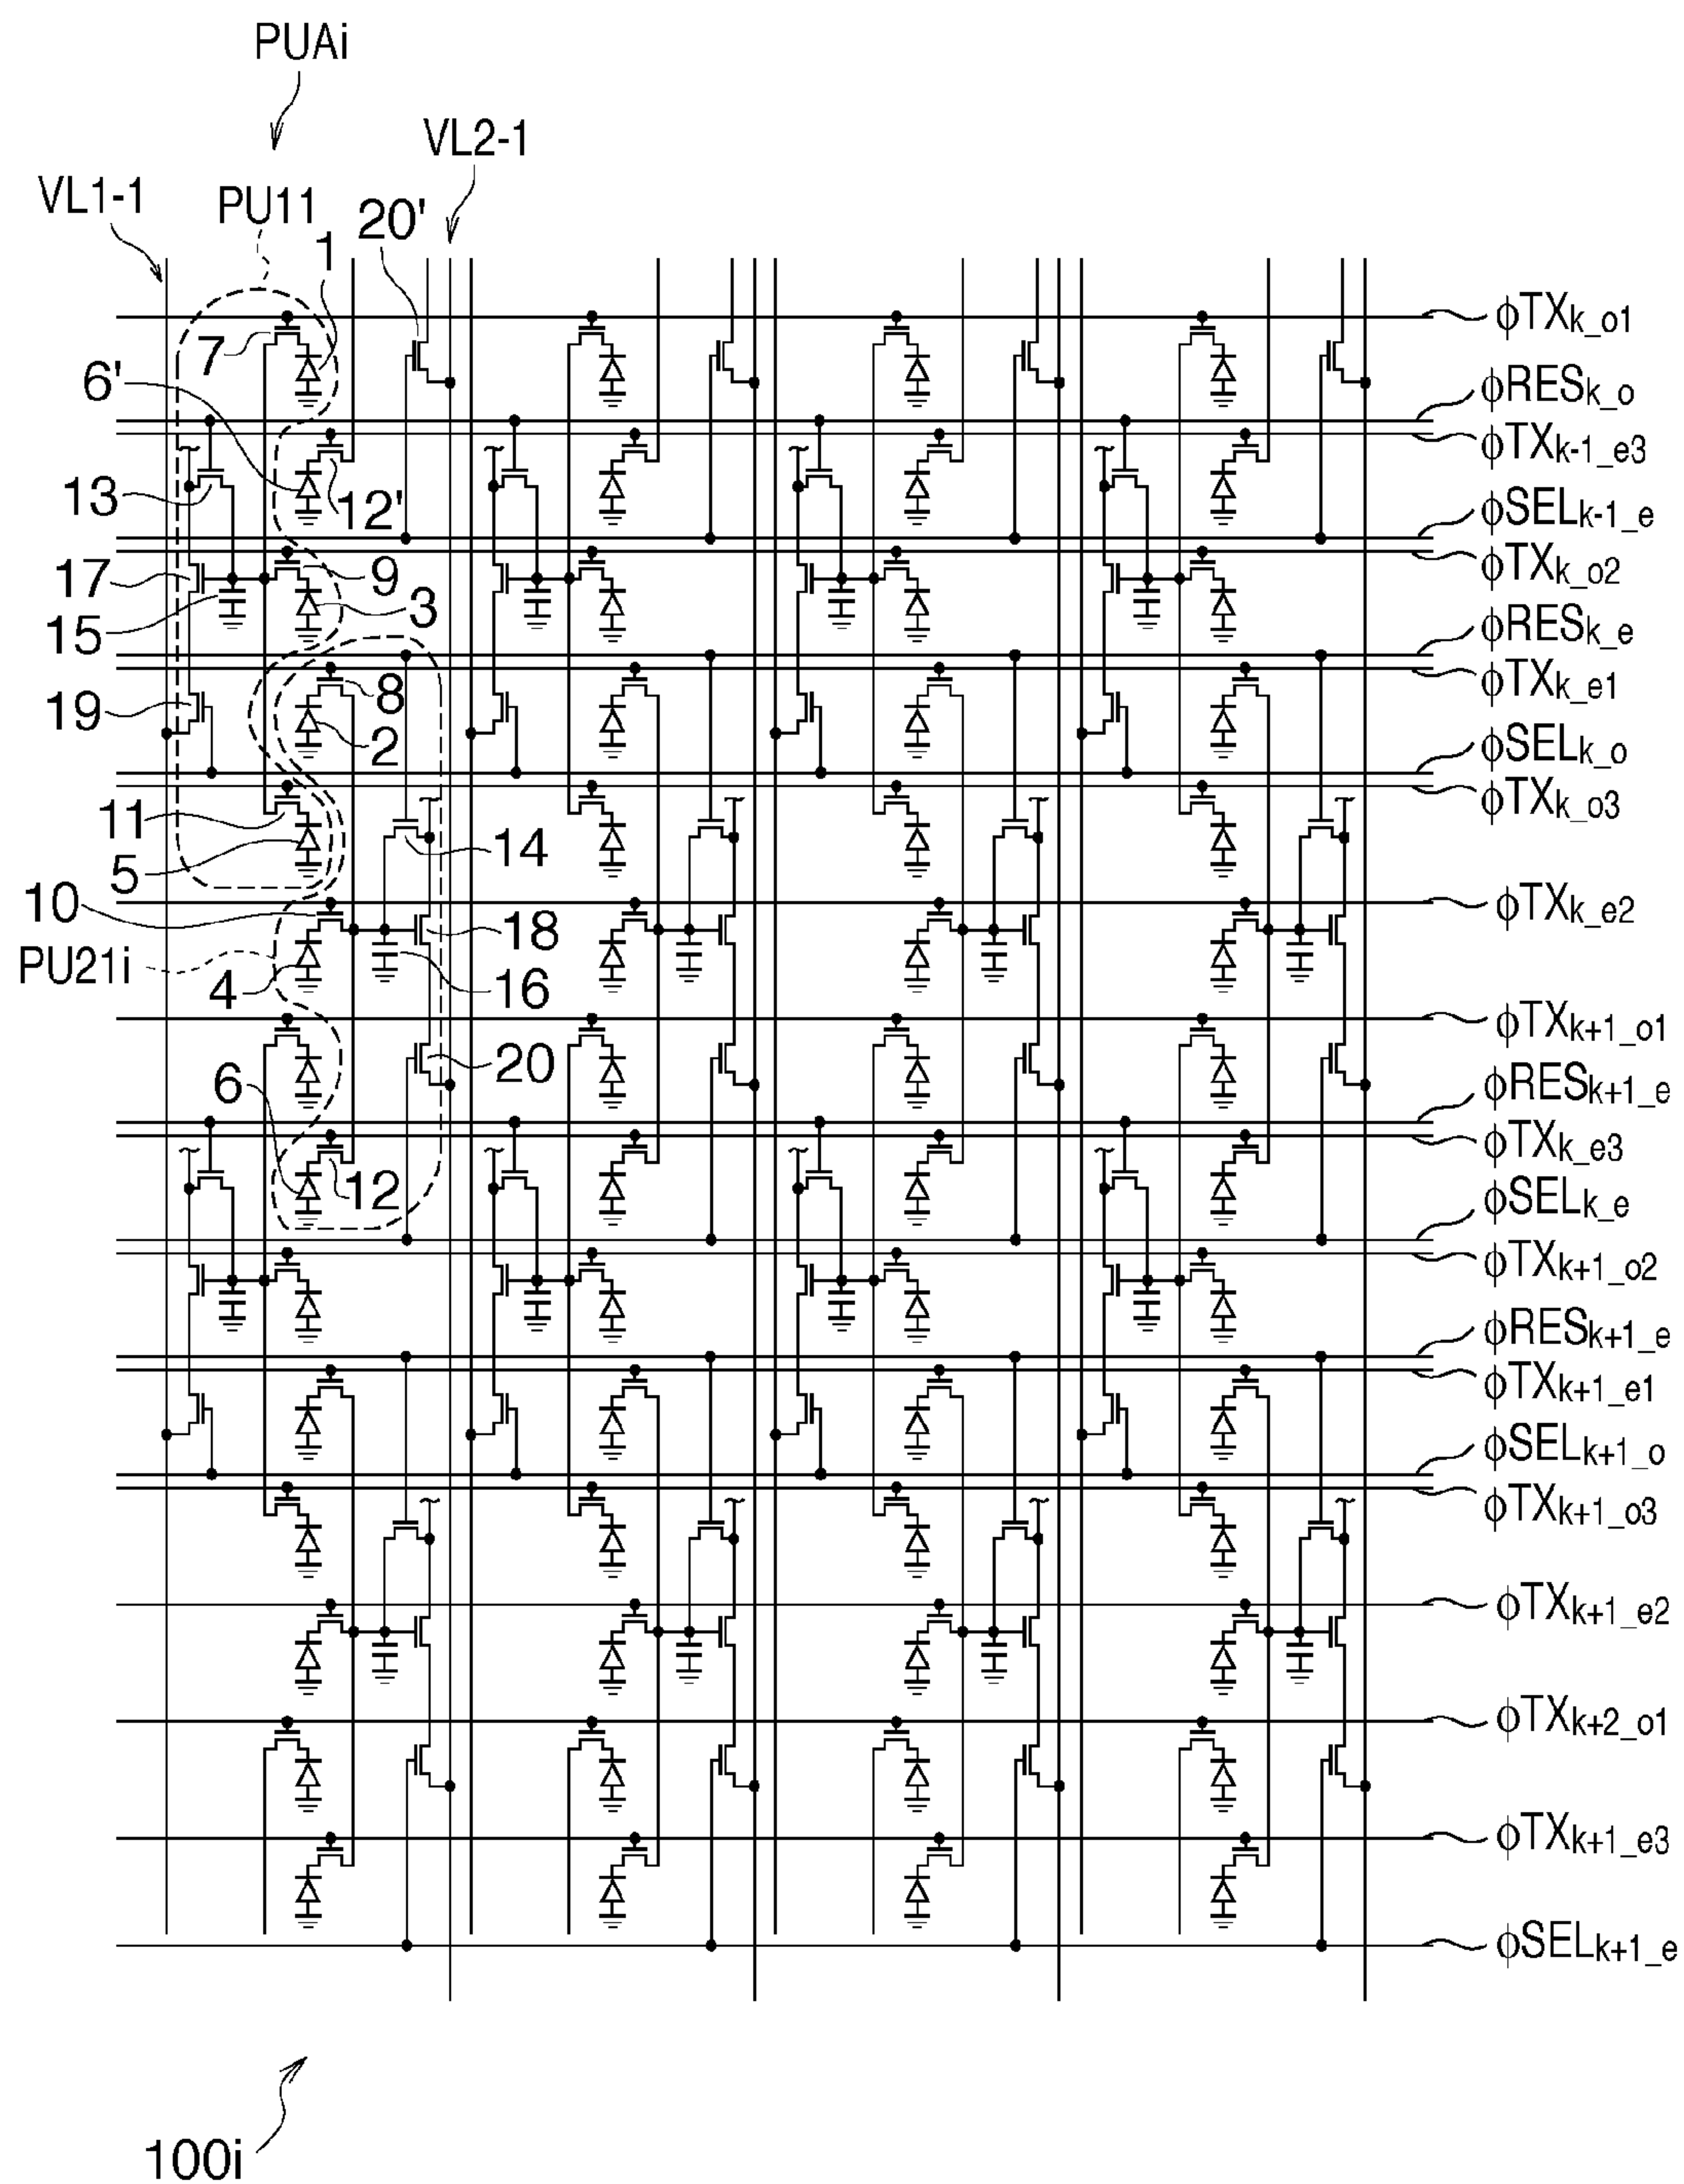 PUAi
VL2-1
VL1-1
PU11
20'
1
7
6'
13
12'
17
9
15
3
19
8
2
11
5
14
10
18
PU21i
4
16
20
6
12
ϕTXk_o1
ϕRESk_o
ϕTXk-1_e3
ϕSELk-1_e
ϕTXk_o2
ϕRESk_e
ϕTXk_e1
ϕSELk_o
ϕTXk_o3
ϕTXk_e2
ϕTXk+1_o1
ϕRESk+1_e
ϕTXk_e3
ϕSELk_e
ϕTXk+1_o2
ϕRESk+1_e
ϕTXk+1_e1
ϕSELk+1_o
ϕTXk+1_o3
ϕTXk+1_e2
ϕTXk+2_o1
ϕTXk+1_e3
ϕSELk+1_e
100i